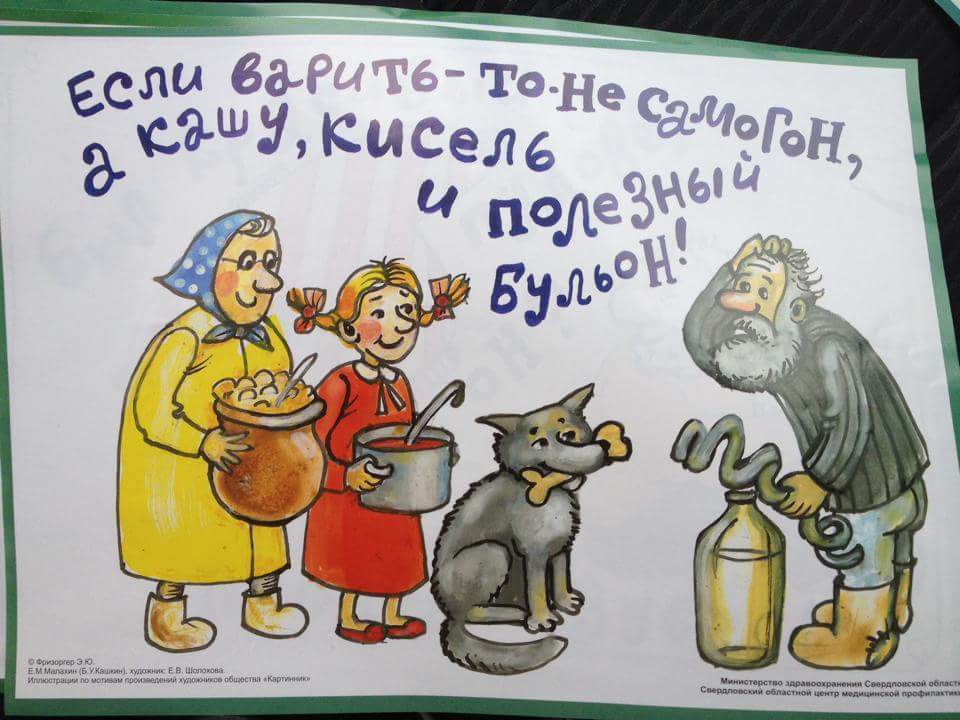 Если варить - то не самогон,
а кашу, кисель
и полезный
бульон!
© Фризоргер Э.Ю.
Е.М.Малахин (Б.У.Кашкин), художник: Е.В. Шолохова.
Иллюстрации по мотивам произведений художников общества «Картинник»
Министерство здравоохранения Свердловской области
Свердловский областной центр медицинской профилактики